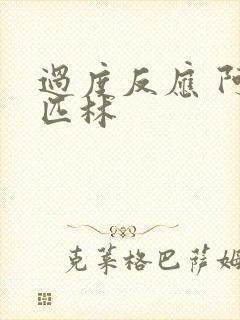 過度反應 阿
匹林
克萊格巴薩姆